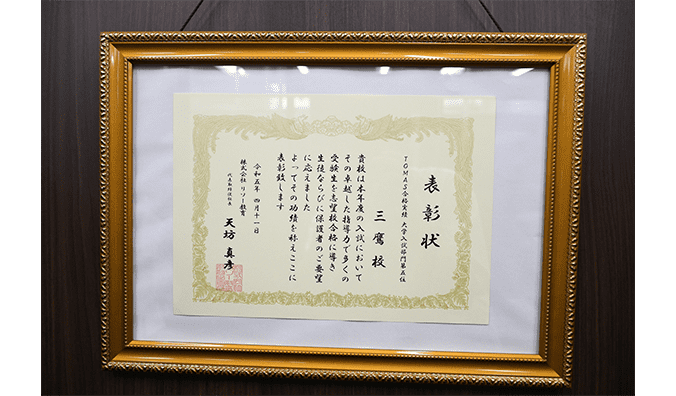 表彰状
TOMAS合格実績 大学入試部門第五位
三鷹校
貴校は本年度の入試において
その卓越した指導力で多くの
受験生を志望校合格に導き
生徒ならびに保護者のご要望
に応えました
よってその功績を称えここに
表彰致します
令和五年 四月十一日
株式会社 リソー教育
代表取締役社長
天坊 真彦